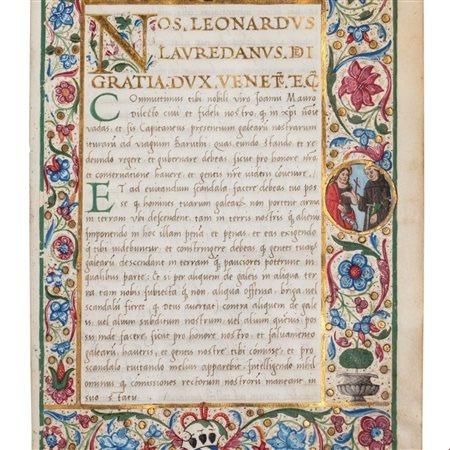 NOS, LEONARDVS
LAVREDANVS, DEI
GRATIA, DVX, VENET, ET, C
Committimus tibi nobili viro Joanni Mauro
dilecto civi et fideli nostro, q in xpi noie
vadas, et sis Capitaneus presentium galearu nostrarum
ituraru ad viagium Baruthi, quas eundo, stando et re
deundo regere et gubernare debeas, sicut pro honore nro,
et conservatione haveris, et gentis nre videris convenire.
Et ad evitandum scandala facere debeas tuo pos
se q homines tuarum galearu non portent arma
in terram ubi descendent, tam in terris nostris q alienis
imponendo in hoc illam pena, et penas, et eas exigendo
q tibi videbuntur, et constringere debeas, q gentes tuaru
galearu descendant in terram q pauciores poterunt in
qualibus parte: Et si per aliquem de galeis in aliqua ter
ra, tam nobis subiecta q non, aliqua offensio, briga, vel
scandalu fieret, q Deus avertat, contra aliquem de gale
is, vel alium subditum nostrum, vel alium quenvis, pos
sis inde facere, sicut pro honore nostro, et salvamento
galearu, haveris, et gentis nostre tibi comisse, et pro
scandalo evitando melius apparebit, Intelligendo nihil
ominus, q comissiones rectorum nostroru maneant in
suo statu.